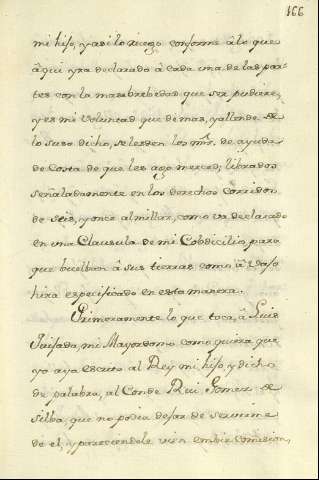 166
mi hijo, y asi lo ruego conforme à lo que
à qui yra declarado à cada una de las par-
tes con la mas brebedad que ser pudiere,
y es mi voluntad que demas, y allende de
lo suso dicho, se les den los mrs. de ayuda
de Costa de que les ago merced; librados
señaladamente en los derechos
de seis, y once al millar, como va declarado
en una Clausula de mi Cobdicilio, para
que buelban à sus tierras como à
hira especificado en esta manera.
Primeramente lo que toca, à Luis
Quijada, mi Mayordomo como quiera que
yo aya escrito al Rey mi hijo, y dicho
de palabra, al Conde Rui Gomez de
Silba, que no podia dejar de servirme
de el, y pareciendole embie comision,